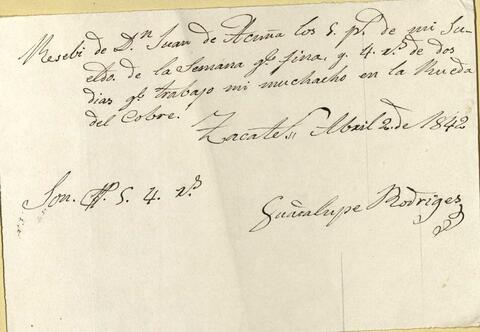 Resebi de D.n Juan de Acuña los 5. p.s de mi Su-
eldo. de la Semana q.e fina, y 4. r.s de dos
dias q.e trabajo mi muchacho en la Rueda
del Cobre.
Zacate.s Abril 2. de 1842
Son. P. 5. 4. r.s
Guadalupe Rodriges